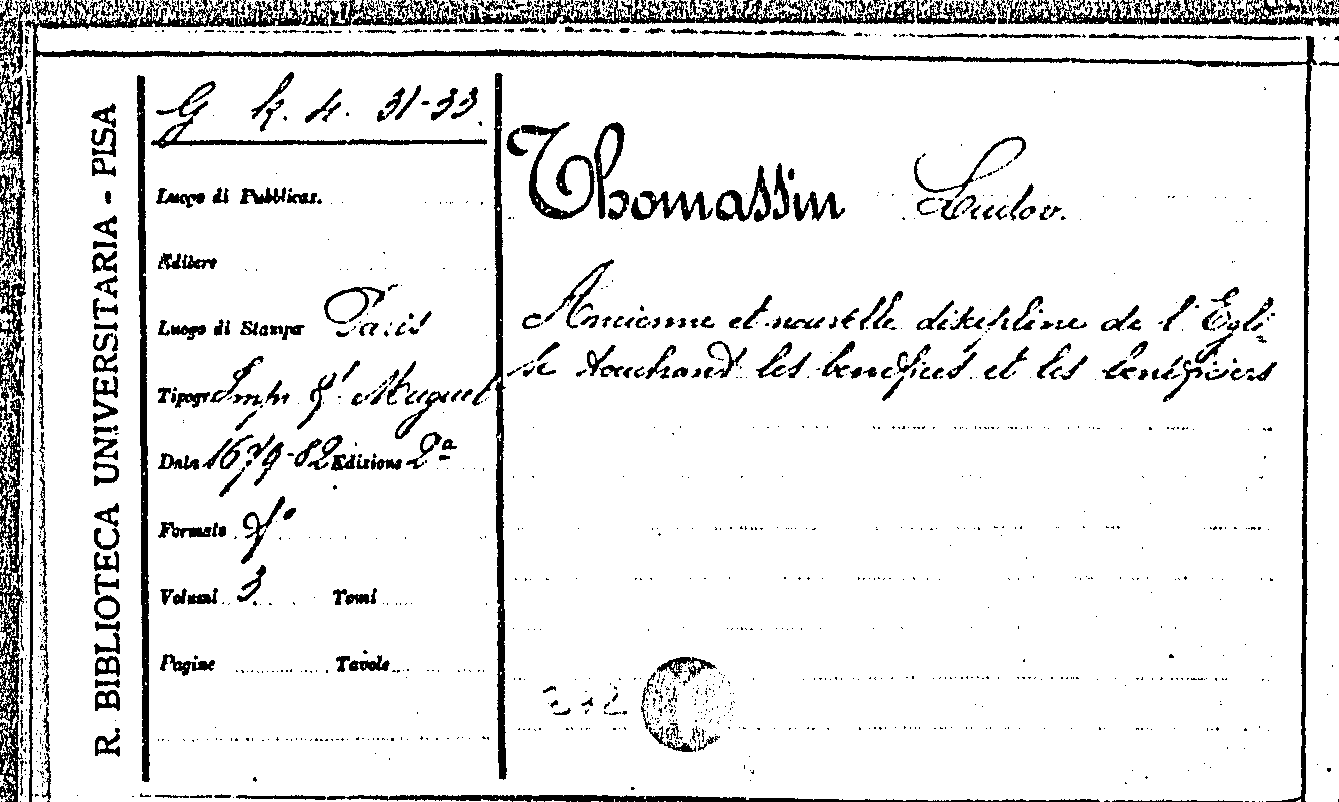 R. BIBLIOTECA UNIVERSITARIA - PISA
G k. 4. 31-33.
Luogo di Pubblicaz.
Editore
Luogo di Stampa Paris
Tipogr. Impr F. Muguet
Data 1679-82 Edizione 2ª
Formato f°
Volumi 3. Tomi
Pagine Tavole
Thomassin Ludov.
Ancienne et nouvelle discipline de l'Egli
se touchant les benefices et les beneficiers